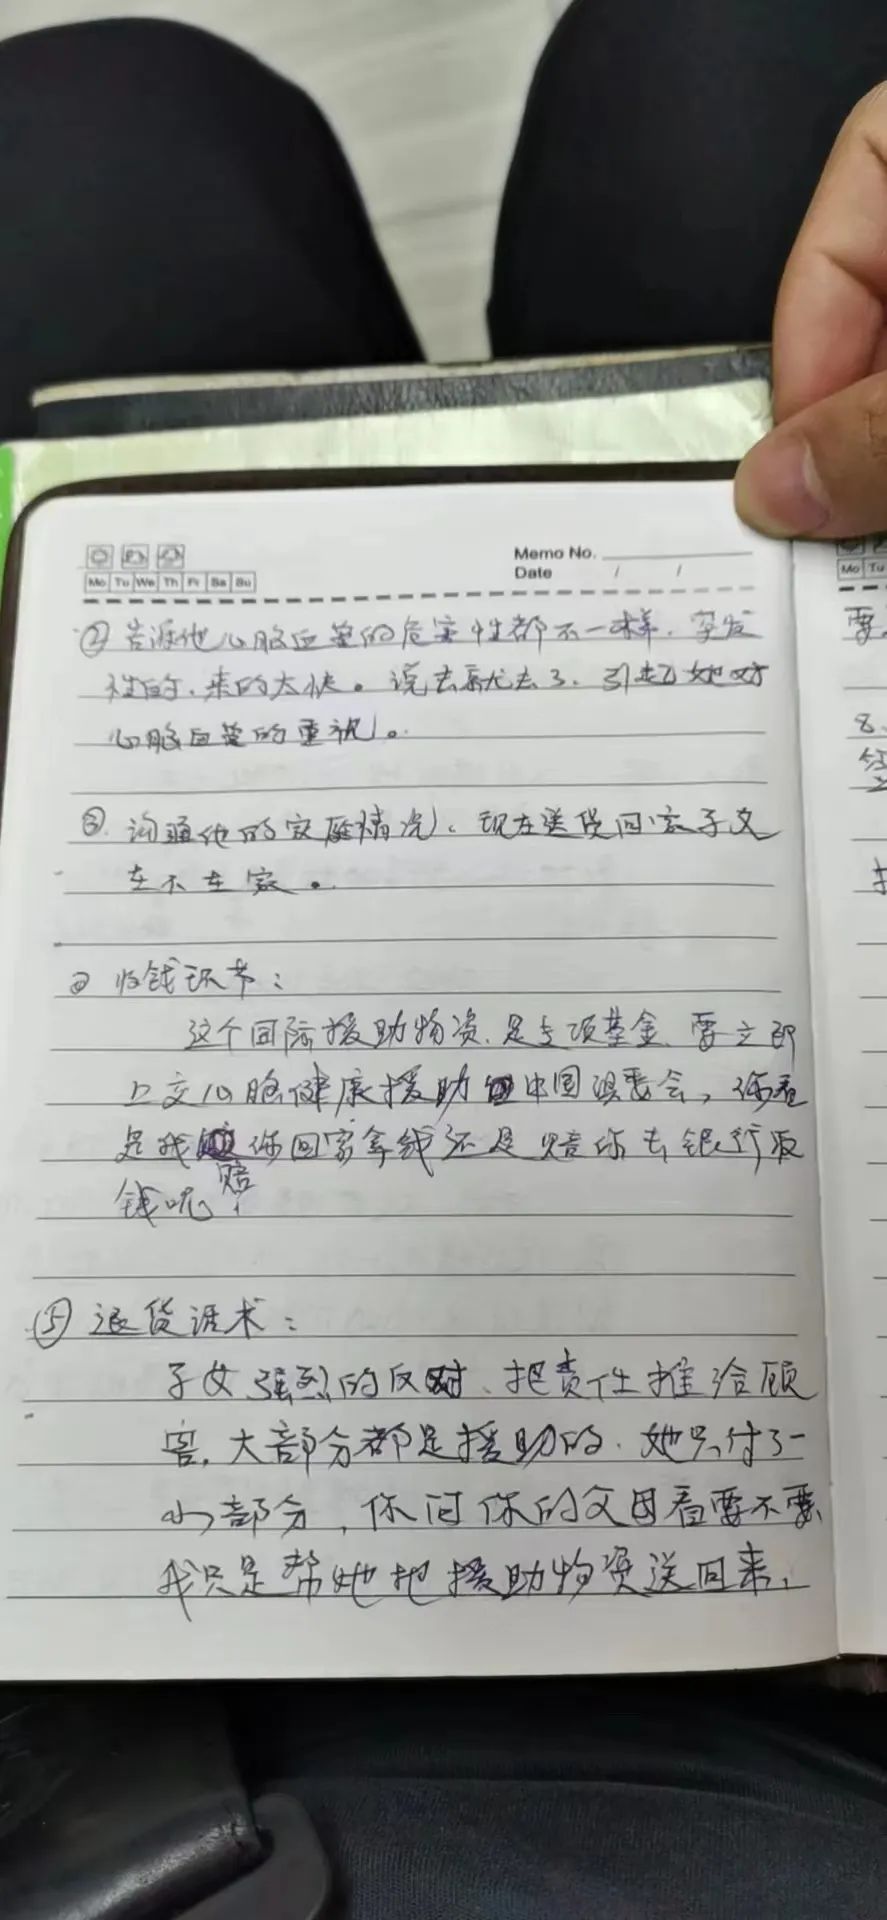 Memo No.
Date / /
Mo Tu We Th Fr Sa Su
Mo Tu
② 告诉他心脑血管的危害性都不一样、突发
性的、来的太快。说去就去了、引起她对
心脑血管的重视。
③ 沟通他的家庭情况、现在送货回家子女
在不在家。
收钱环节：
这个国际援助物资、是专项基金、要立即
上交心脑健康援助中国组委会，你看
是我 你回家拿钱还是赔你去银行取
钱呢？
赔
⑤ 退货话术：
子女强烈的反对、把责任推给顾
客，大部分都是援助的、她只付了一
小部分，你问你的父母看要不要、
我只是帮她把援助物资送回来，
要
8、